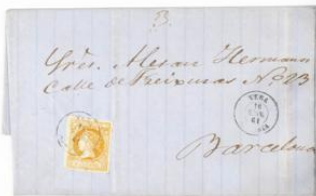 Sres. Alesan Hermanos
Calle de Freixuras Nº 23
VERA
61
Barcelona